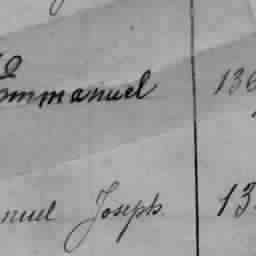 Emmanuel 136
nuel Joseph 13